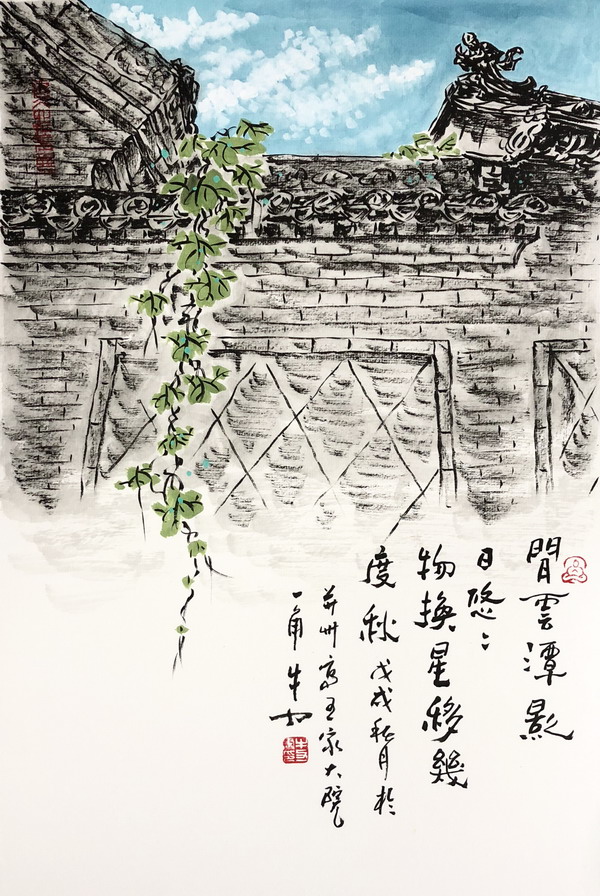 閒雲潭影
日悠〻
物換星移幾
度秋 戊戌秋月於
并州寫王家大院
一角 牛